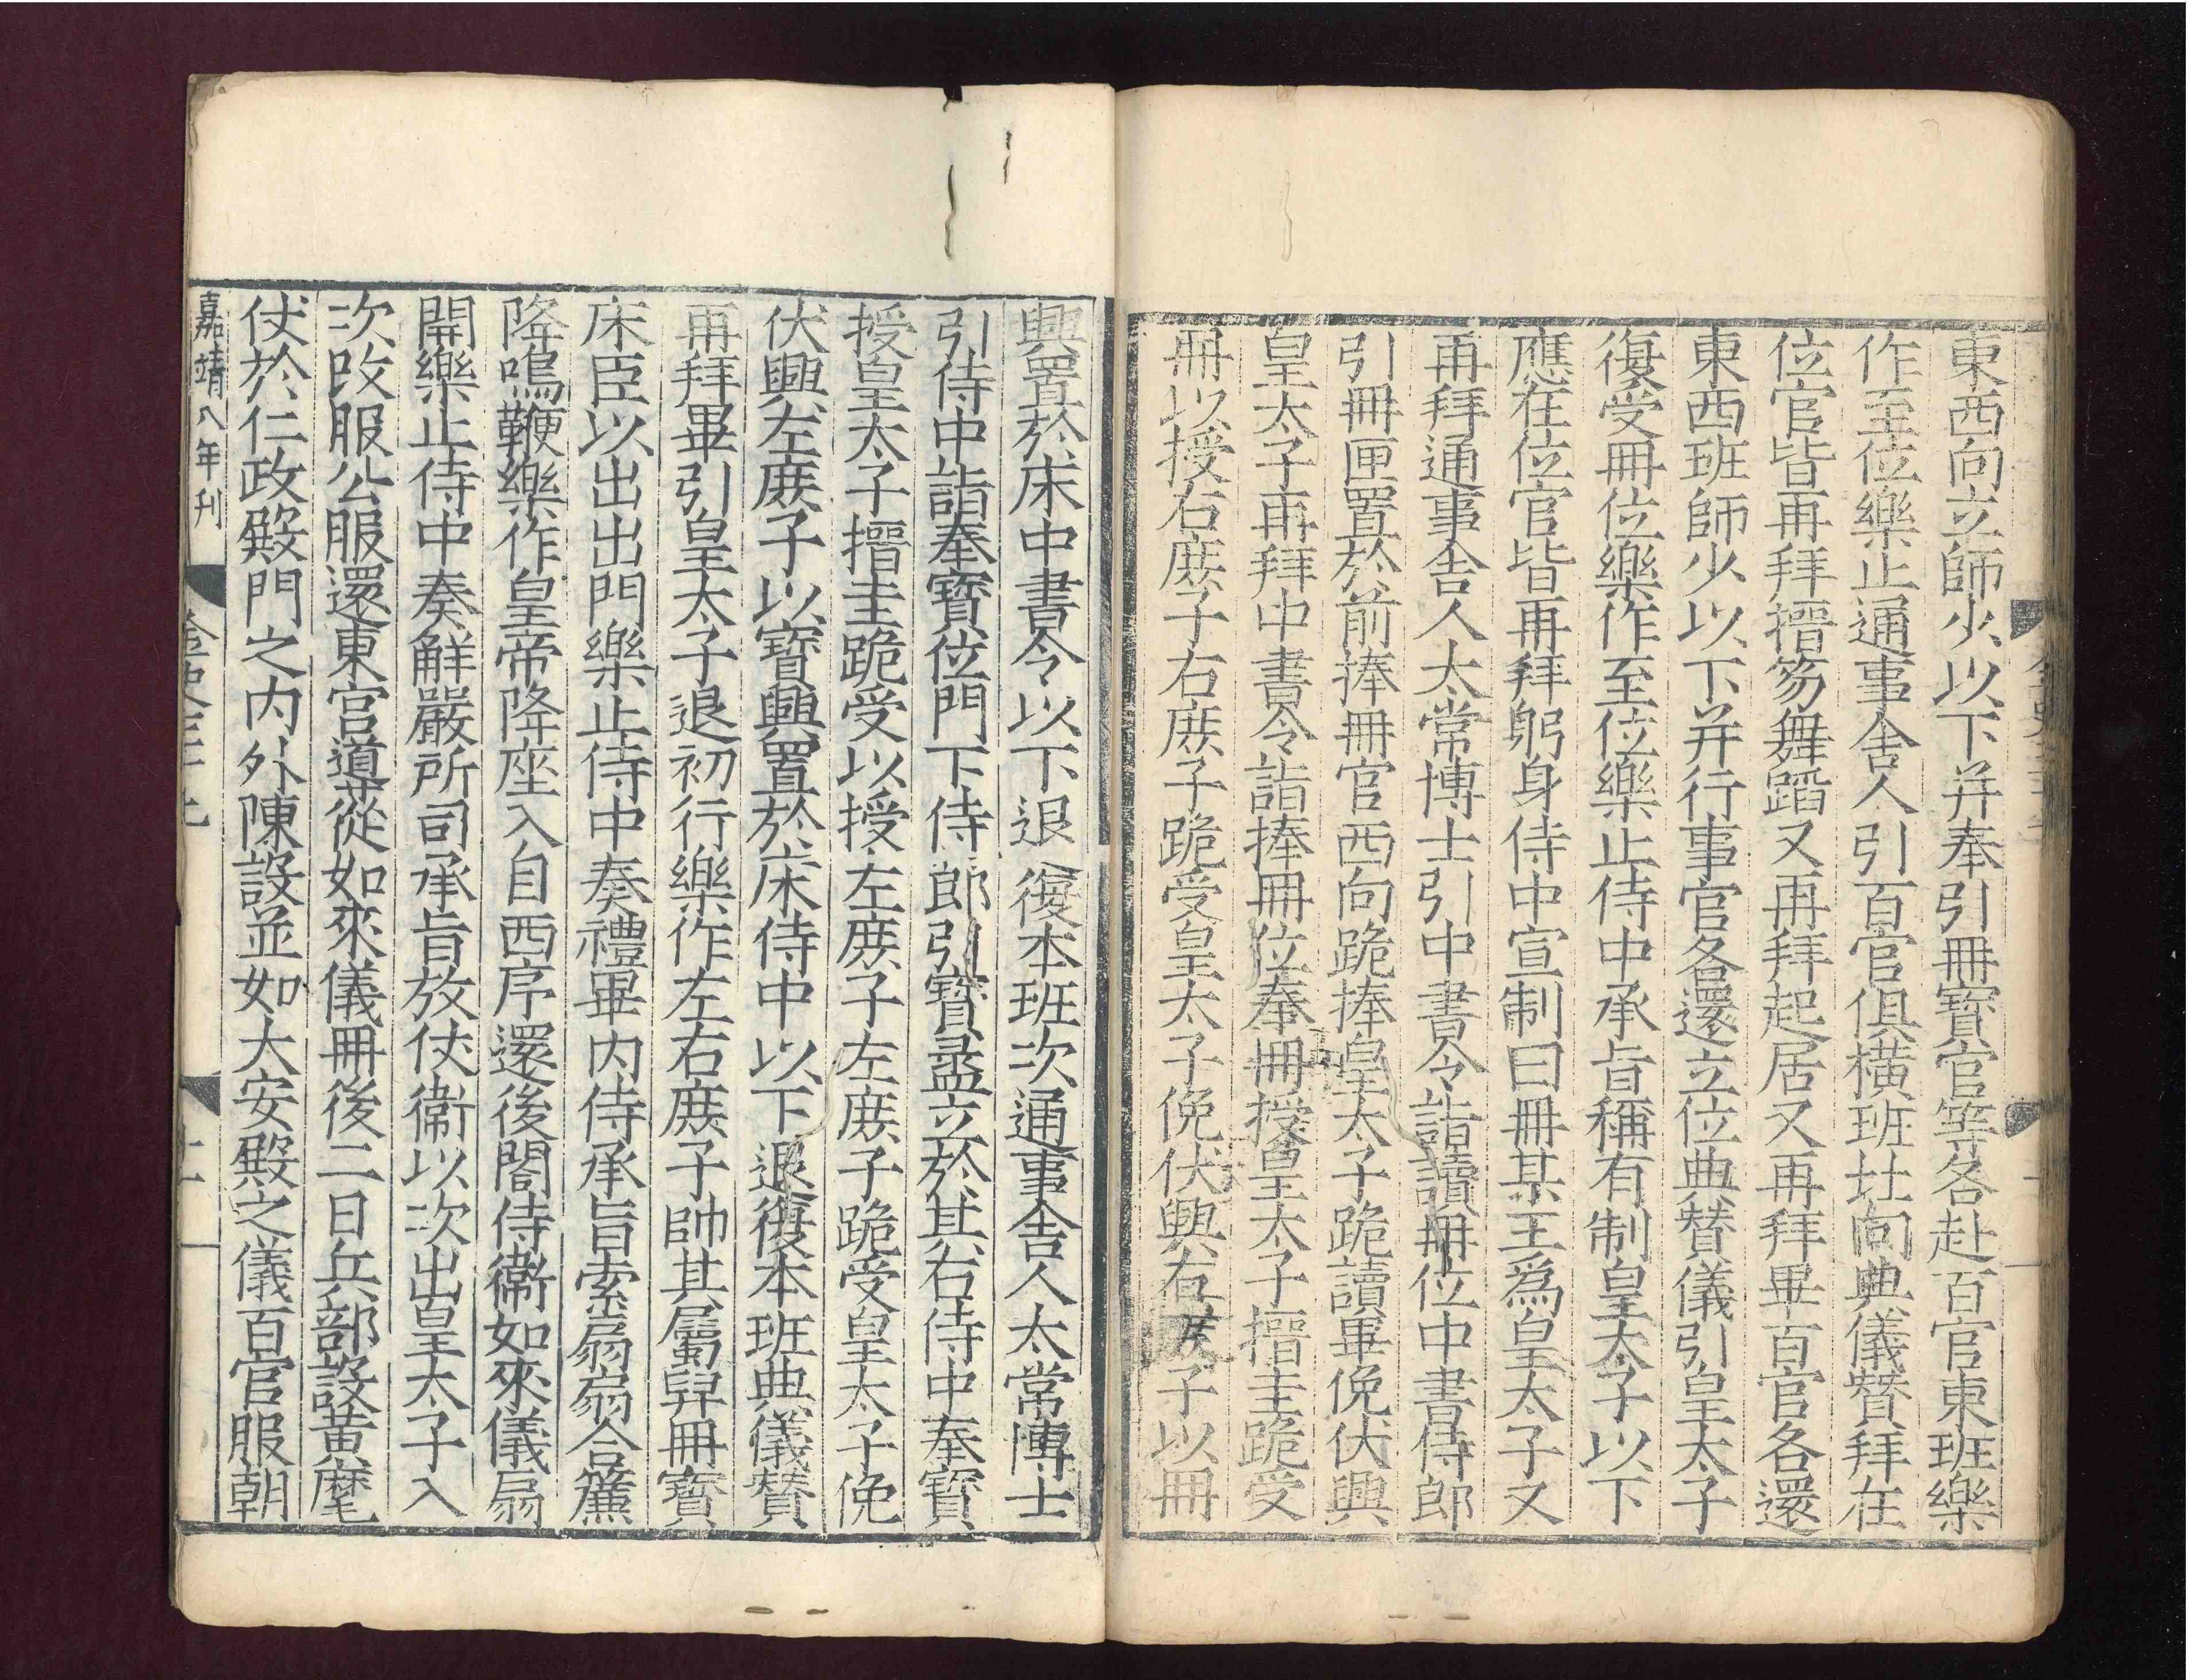 東西向立師少以下并奉引冊寶官等各赴百官東班樂
作至位樂止通事舍人引百官俱橫班北向典儀贊拜在
位官皆再拜搢笏舞蹈又再拜起居又再拜畢百官各還
東西班師少以下并行事官各還立位典贊儀引皇太子
復受冊位樂作至位樂止侍中承旨稱有制皇太子以下
應在位官皆再拜躬身侍中宣制曰冊某王爲皇太子又
再拜通事舍人太常博士引中書令詣讀冊位中書侍郎
引冊匣置於前捧冊官西向跪捧皇太子跪讀畢俛伏興
皇太子再拜中書令詣捧冊位奉冊授皇太子搢圭跪受
冊以授右庶子右庶子跪受皇太子俛伏興右庶子以冊
興置於床中書令以下退復本班次通事舍人太常博士
引侍中詣奉寶位門下侍郎引寶盝立於其右侍中奉寶
授皇太子搢圭跪受以授左庶子左庶子跪受皇太子俛
伏興左庶子以寶興置於床侍中以下退復本班典儀贊
再拜畢引皇太子退初行樂作左右庶子帥其屬舁冊寶
床臣以出出門樂止侍中奏禮畢內侍承旨索扇扇合簾
降鳴鞭樂作皇帝降座入自西序還後閤侍衞如來儀扇
開樂止侍中奏解嚴所司承旨放仗衞以次出皇太子入
次改服公服還東宮導從如來儀冊後二日兵部設黃麾
仗於仁政殿門之內外陳設並如大安殿之儀百官服朝
嘉靖八年刊